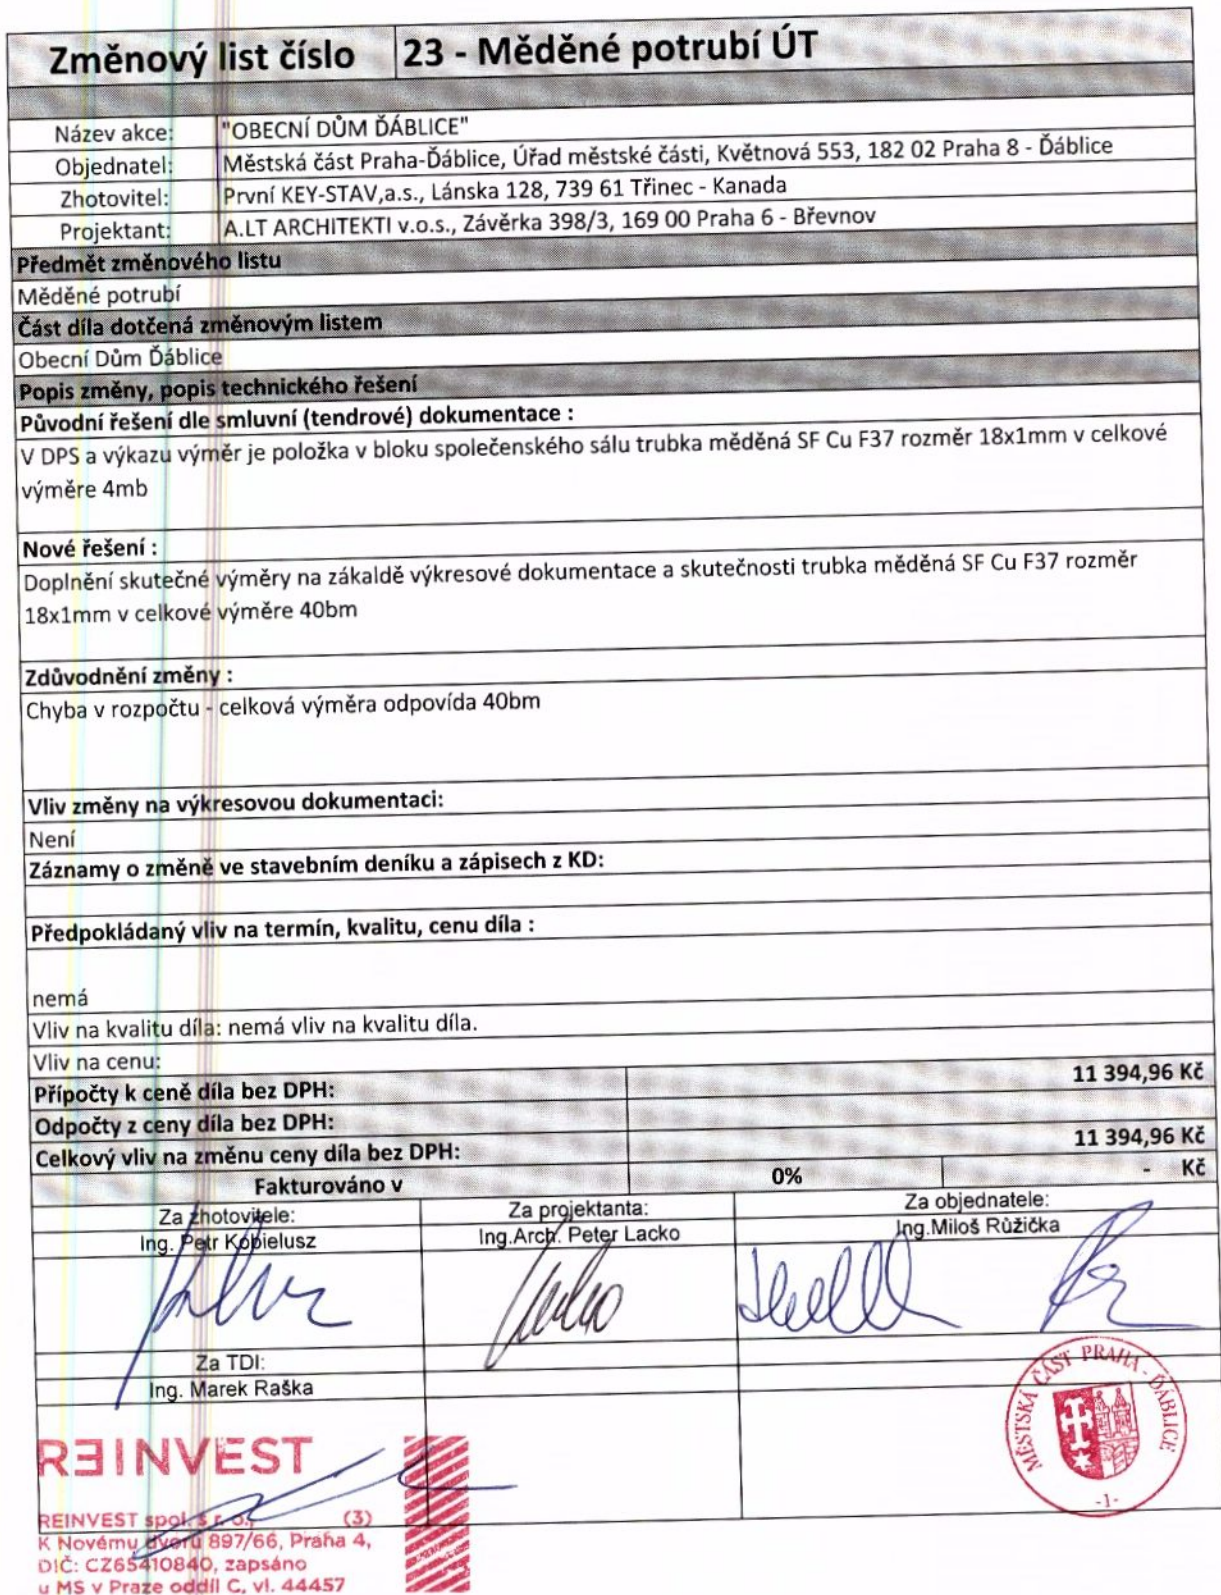 Změnový list číslo 23 - Měděné potrubí ÚT
Název akce: "OBECNÍ DŮM ĎÁBLICE"
Objednatel: Městská část Praha-Ďáblice, Úřad městské části, Květnová 553, 182 02 Praha 8 - Ďáblice
Zhotovitel: První KEY-STAV,a.s., Lánska 128, 739 61 Třinec - Kanada
Projektant: A.LT ARCHITEKTI v.o.s., Závěrka 398/3, 169 00 Praha 6 - Břevnov
Předmět změnového listu
Měděné potrubí
Část díla dotčená změnovým listem
Obecní Dům Ďáblice
Popis změny, popis technického řešení
Původní řešení dle smluvní (tendrové) dokumentace :
V DPS a výkazu výměr je položka v bloku společenského sálu trubka měděná SF Cu F37 rozměr 18x1mm v celkové
výměre 4mb
Nové řešení :
Doplnění skutečné výměry na zákaldě výkresové dokumentace a skutečnosti trubka měděná SF Cu F37 rozměr
18x1mm v celkové výměre 40bm
Zdůvodnění změny :
Chyba v rozpočtu - celková výměra odpovída 40bm
Vliv změny na výkresovou dokumentaci:
Není
Záznamy o změně ve stavebním deníku a zápisech z KD:
Předpokládaný vliv na termín, kvalitu, cenu díla :
nemá
Vliv na kvalitu díla: nemá vliv na kvalitu díla.
Vliv na cenu:
Přípočty k ceně díla bez DPH: 11 394,96 Kč
Odpočty z ceny díla bez DPH:
Celkový vliv na změnu ceny díla bez DPH: 11 394,96 Kč
Fakturováno v 0% - Kč
Za zhotovitele: Za projektanta: Za objednatele:
Ing. Petr Kobielusz Ing.Arch. Peter Lacko Ing.Miloš Růžička
Za TDI:
Ing. Marek Raška
MĚSTSKÁ ČÁST PRAHA - ĎÁBLICE
-1-
REINVEST
REINVEST spol. s r. o. (3)
K Novému dvoru 897/66, Praha 4,
DIČ: CZ65410840, zapsáno
u MS v Praze oddíl C, vl. 44457